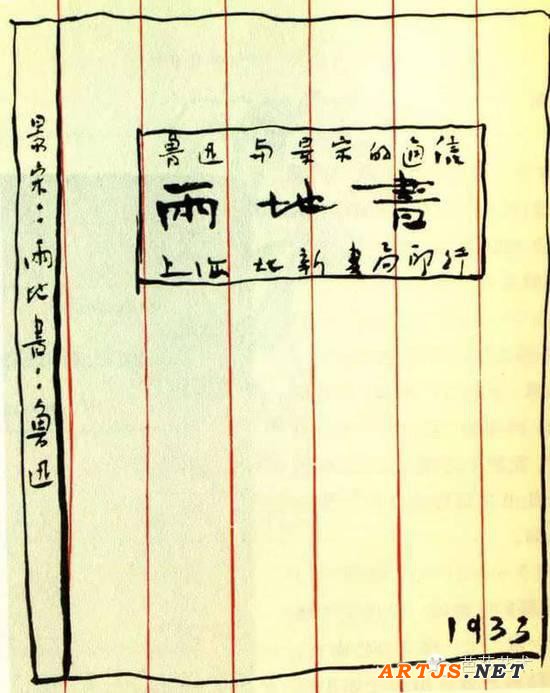 魯迅与景宋的通信
兩地書
上海北新書局印行
景宋：兩地書：魯迅
1933
ARTJS.NET